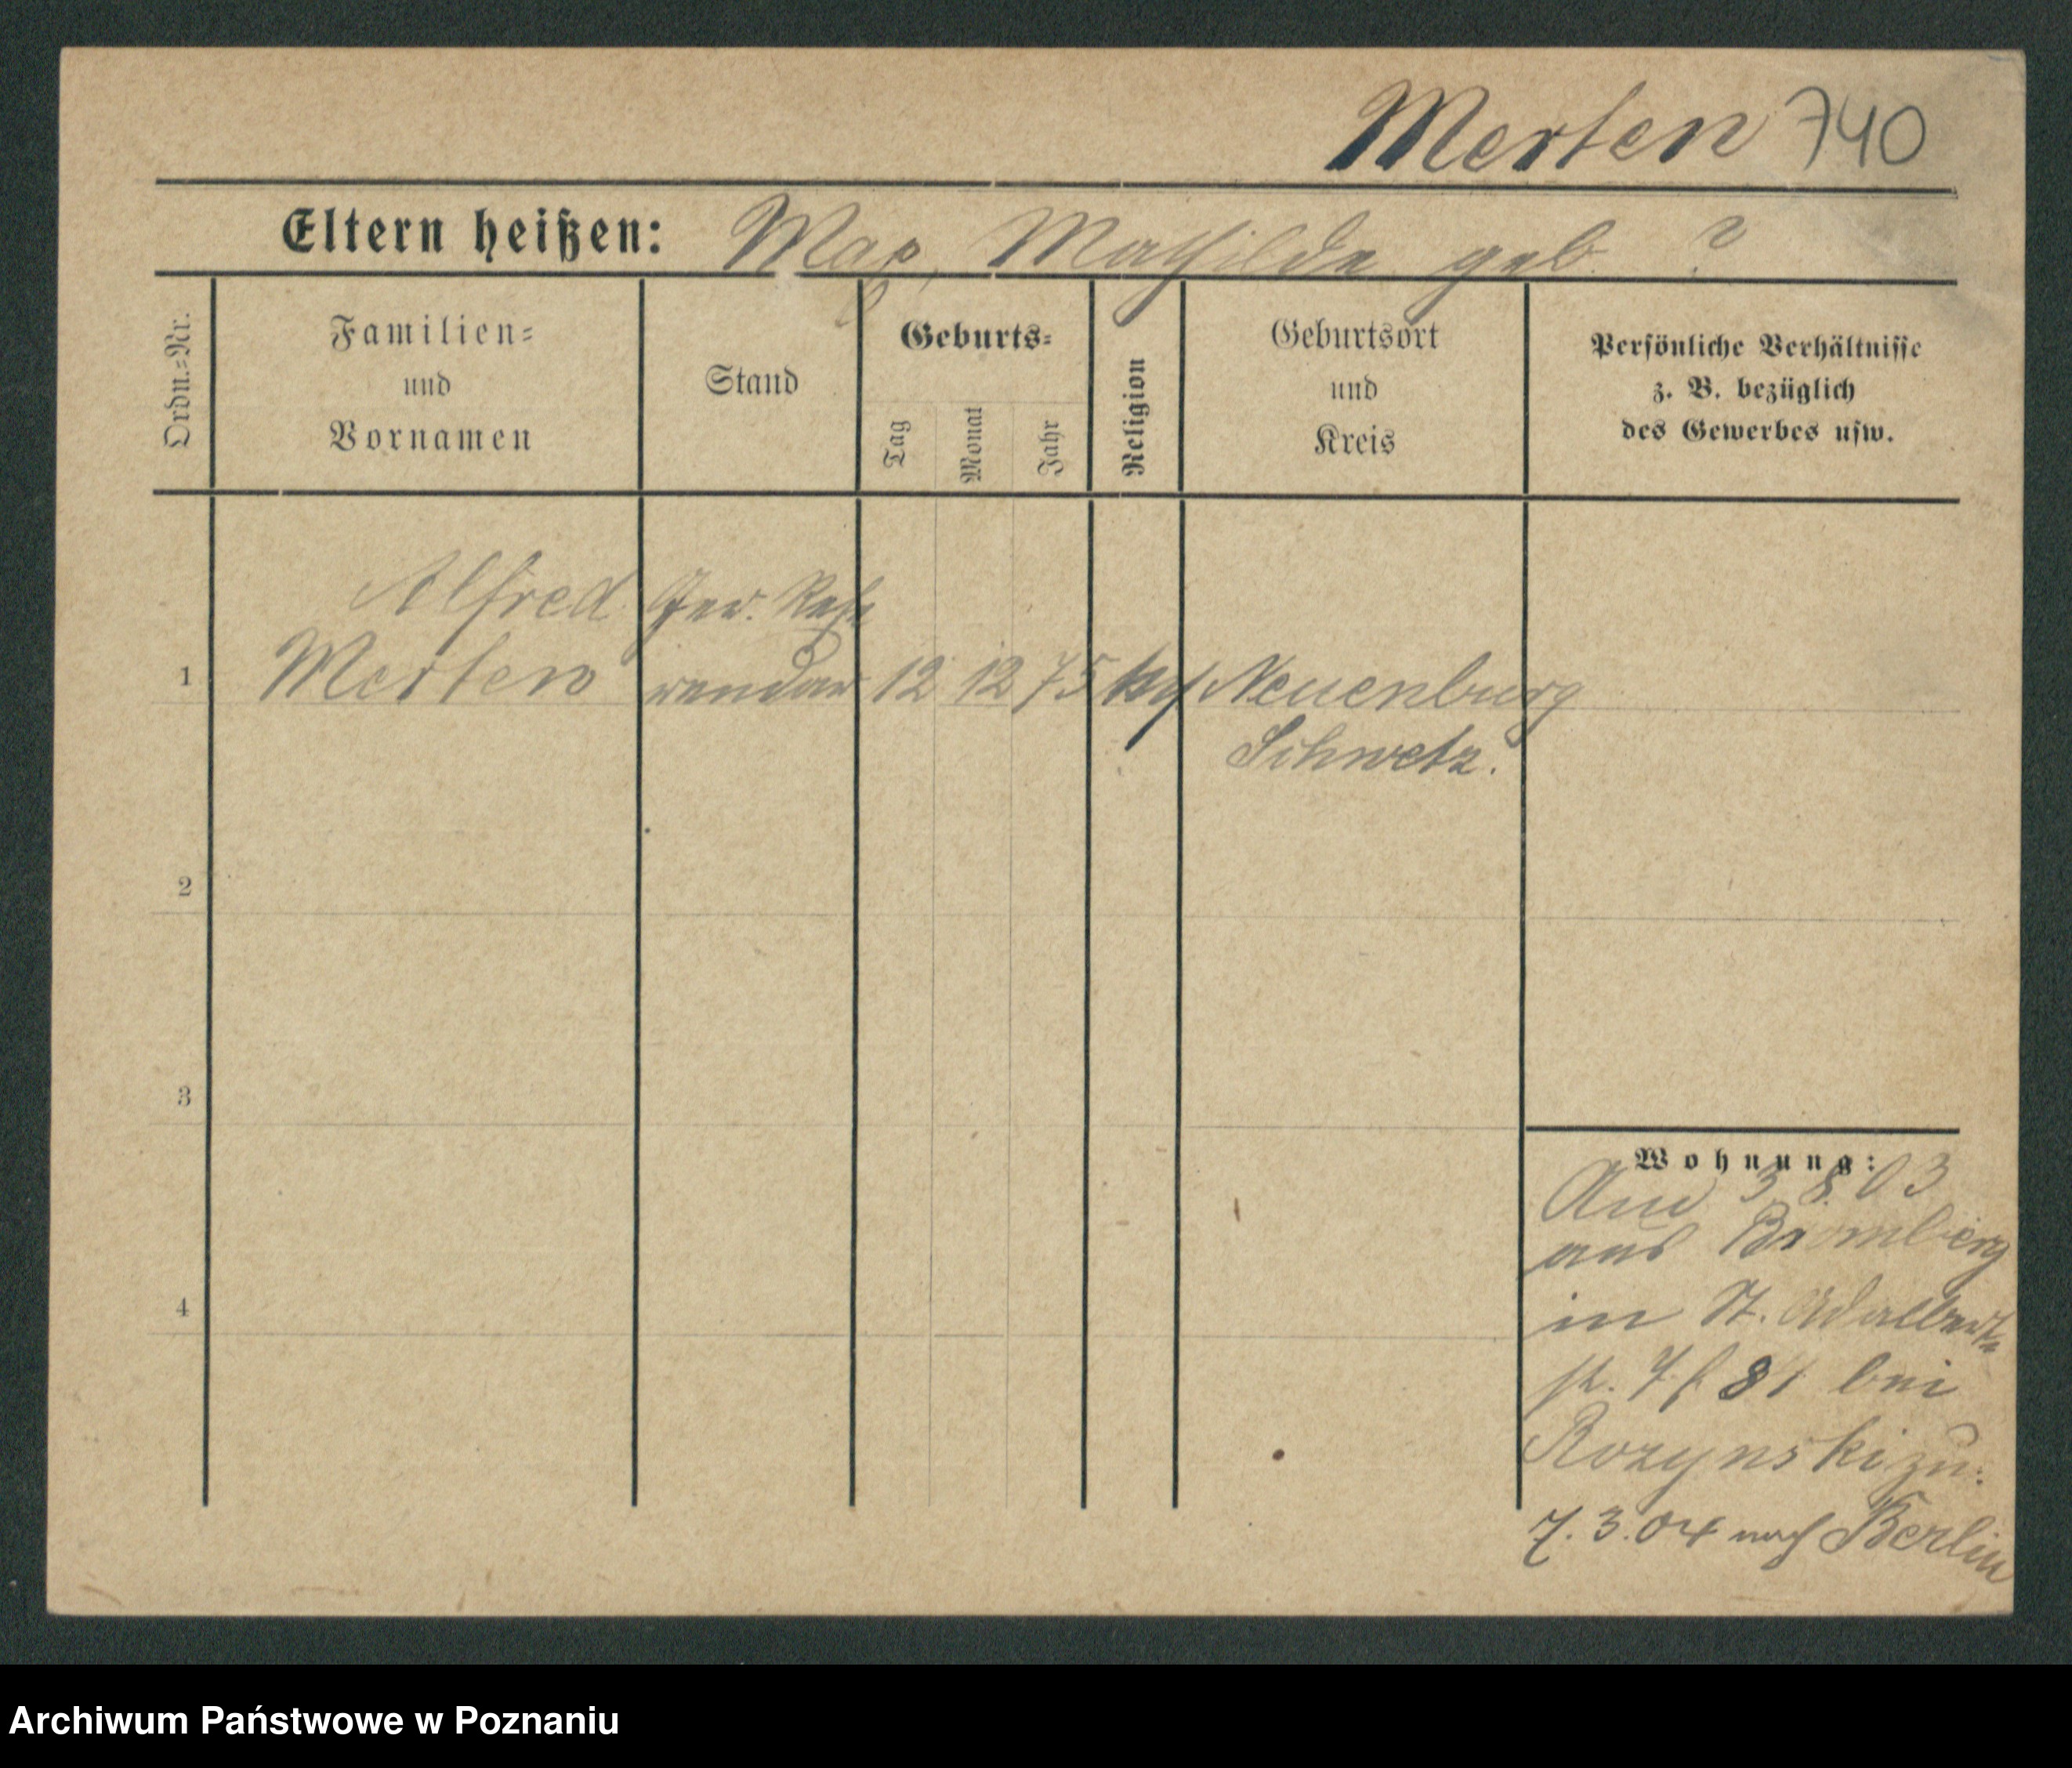 Merten 740
Eltern heißen: Max, Mathilde geb. ?
Ordn.=Nr.
Familien=
und
Vornamen
Stand
Geburts=
Tag
Monat
Jahr
Religion
Geburtsort
und
Kreis
Persönliche Verhältnisse
z. B. bezüglich
des Gewerbes usw.
Alfred Ger. Refe
1 Merten rendar 12 12 75 Neuenburg
Schwetz.
2
3
4
Wohnung:
3 8. 03
aus Bromberg
in St. Adalbert
bei
Rozynski zu.
7. 3. 04 nach Berlin
Archiwum Państwowe w Poznaniu